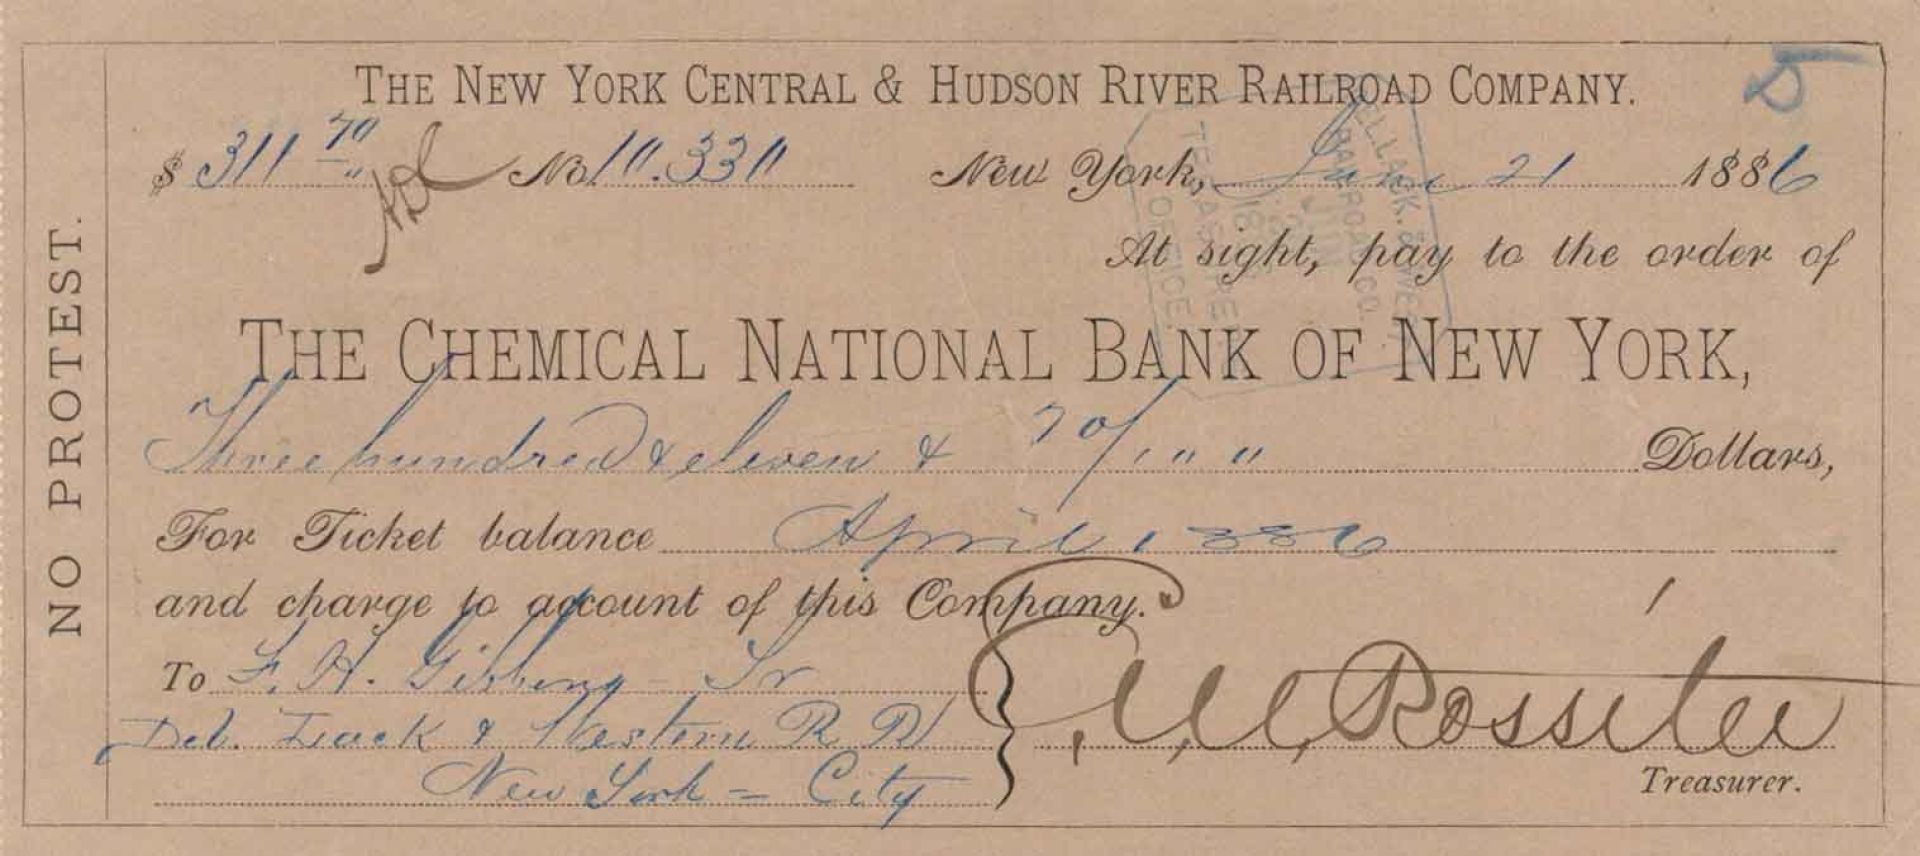 THE NEW YORK CENTRAL & HUDSON RIVER RAILROAD COMPANY.
$ 311 70 No. 10.330 New York, June 21 1886
At sight, pay to the order of
THE CHEMICAL NATIONAL BANK OF NEW YORK,
Three hundred & eleven & 70/100 Dollars,
For Ticket balance April 1886
and charge to account of this Company.
To F. H. Gibbens Tr
Del. Lack & Western R R
New York - City
E. V. W. Rossiter
Treasurer.
NO PROTEST.
DEL. LACK. & WEST.
RAILROAD CO.
JUN
TREASURER
OFFICE.